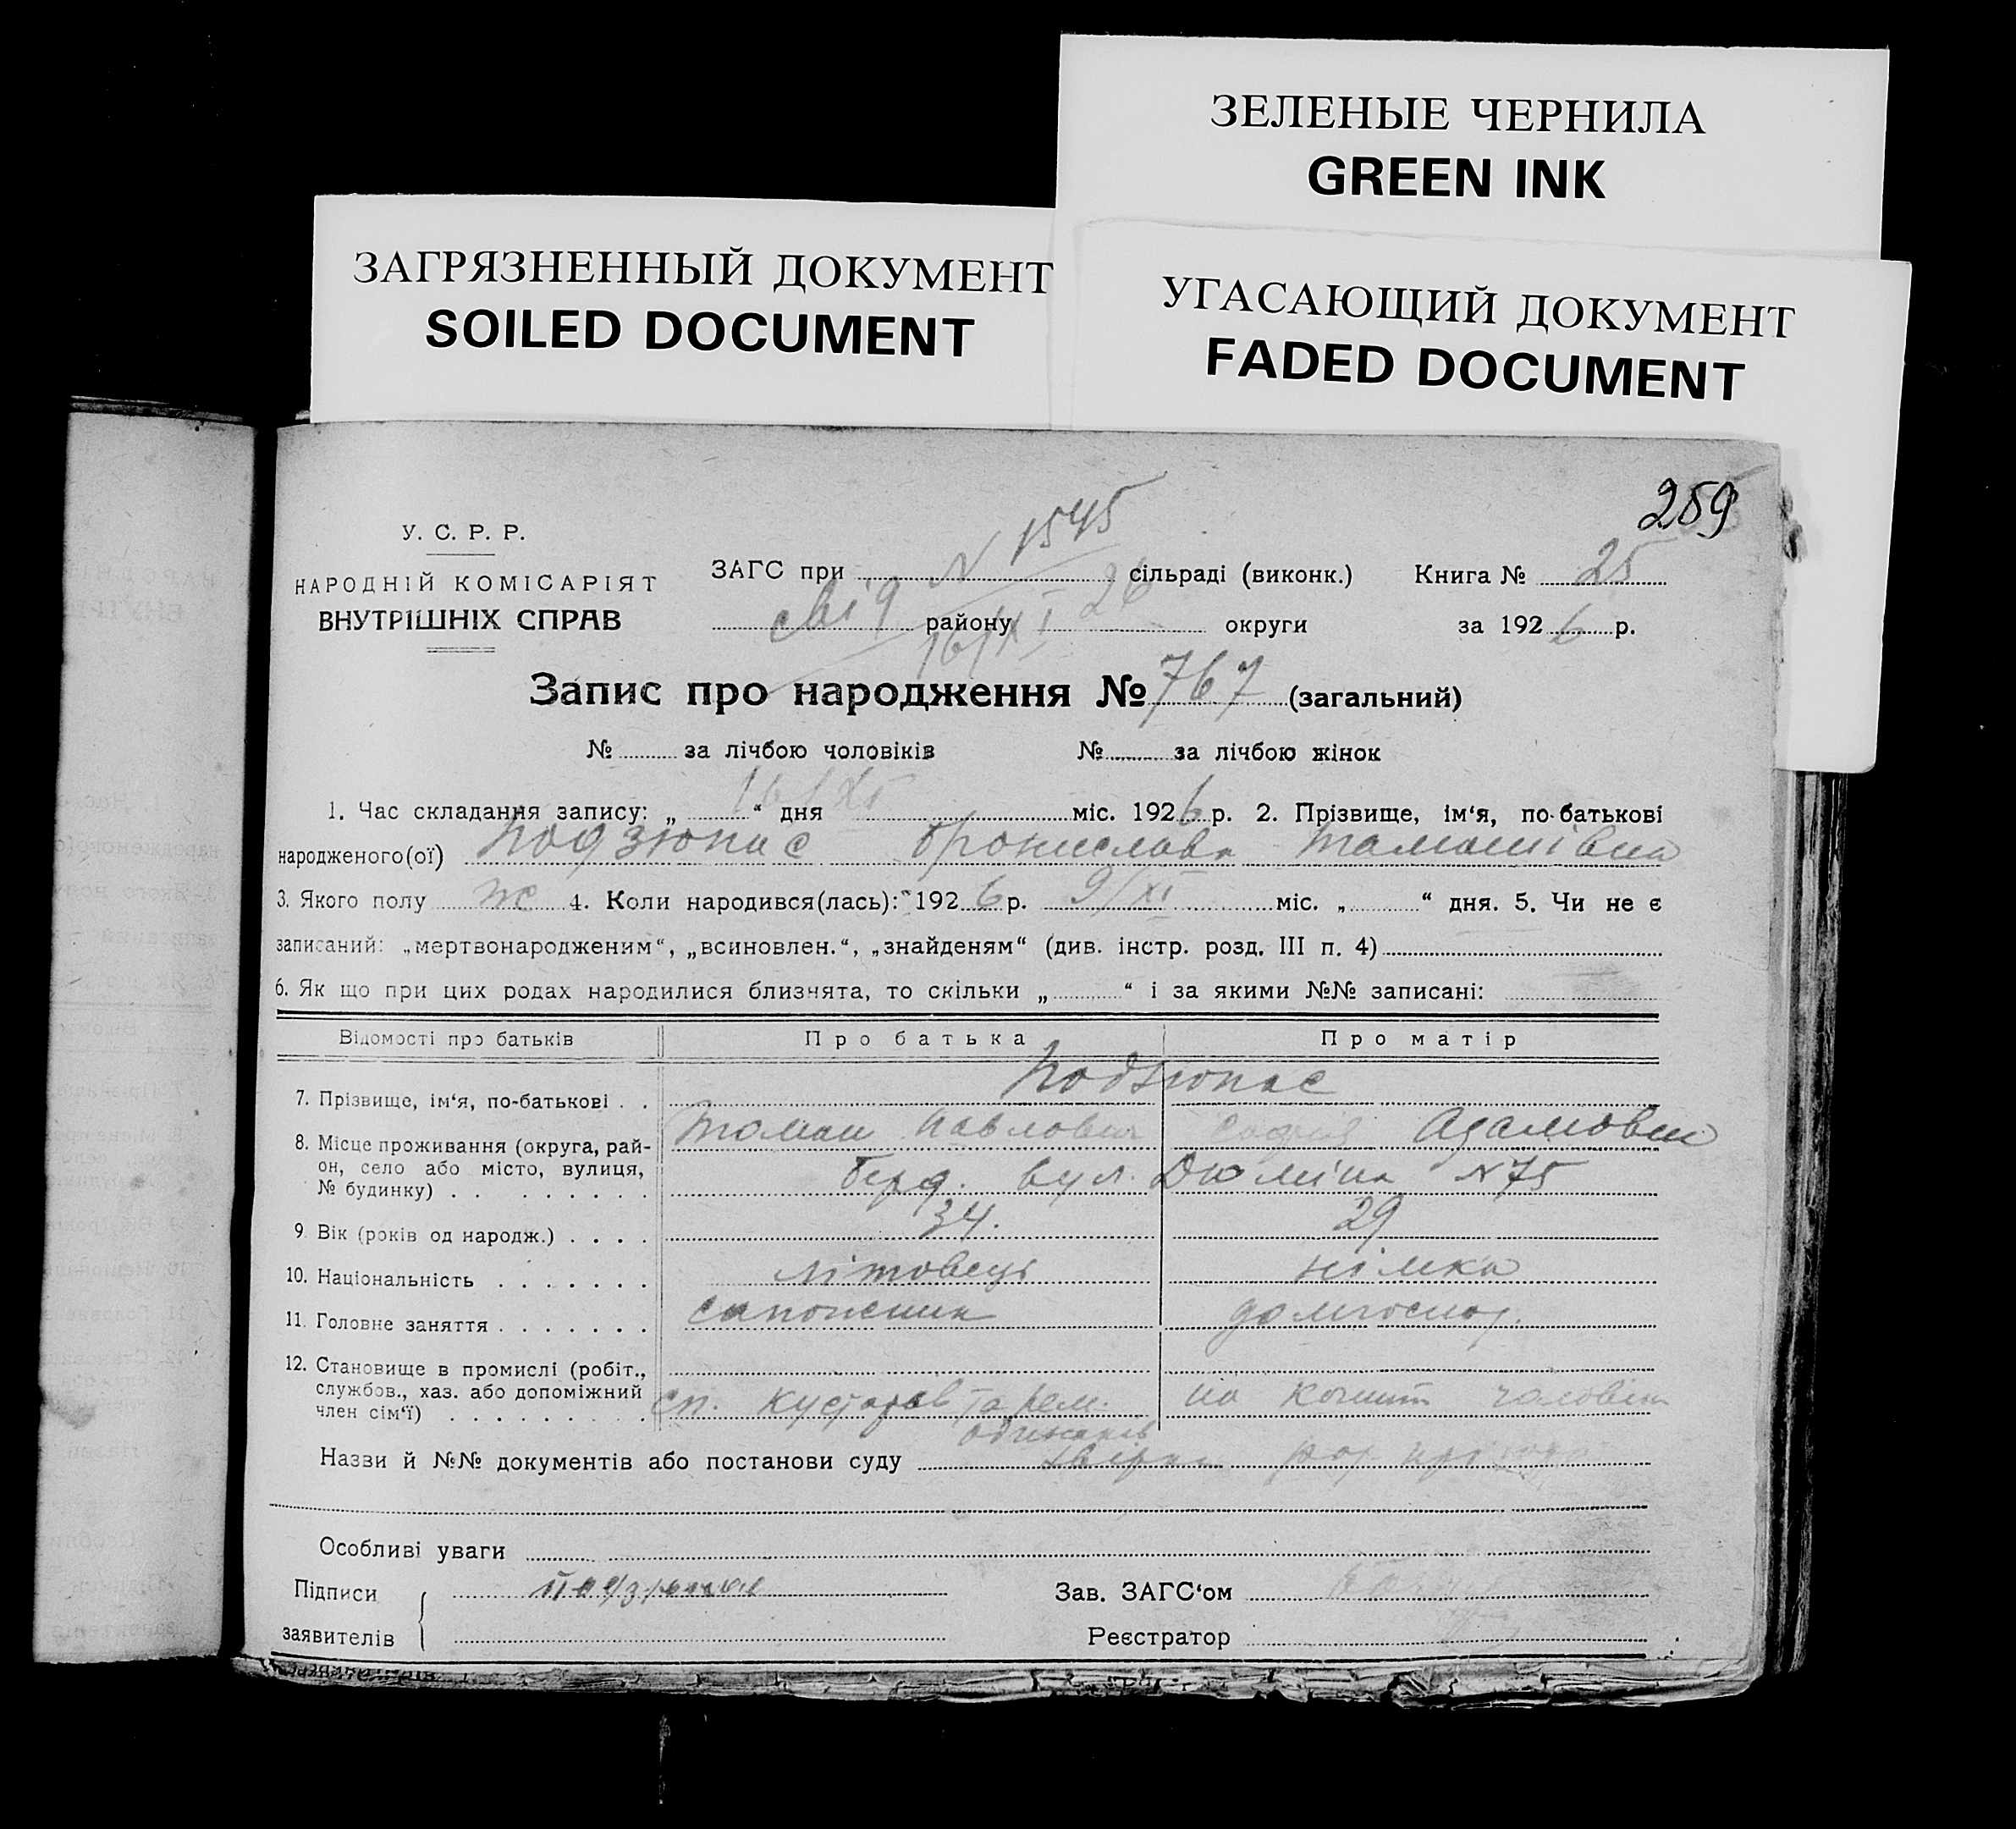 ЗЕЛЕНЫЕ ЧЕРНИЛА
GREEN INK
ЗАГРЯЗНЕННЫЙ ДОКУМЕНТ
SOILED DOCUMENT
УГАСАЮЩИЙ ДОКУМЕНТ
FADED DOCUMENT
259
У. С. Р. Р.
НАРОДНІЙ КОМІСАРІЯТ
ВНУТРІШНІХ СПРАВ
N 1545
ЗАГС при сільраді (виконк.) Книга № 25
свід району 16/XI 26 округи за 1926 р.
Запис про народження № 767 (загальний)
№ за лічбою чоловіків № за лічбою жінок
1. Час складання запису: „ 16/XI “ дня міс. 1926 р. 2. Прізвище, ім‘я, по-батькові
народженого(ої) Подзюнас Броніслава Томашівна
3. Якого полу ж 4. Коли народився(лась): 1926 р. 9/XI міс. „ “ дня. 5. Чи не є
записаний: „мертвонародженим“, „всиновлен.“, „знайденям“ (див. інстр. розд. III п. 4)
6. Як що при цих родах народилися близнята, то скільки „ “ і за якими №№ записані:
Відомості про батьків Про батька Про матір
7. Прізвище, ім‘я, по-батькові . . Подзюнас
Томаш Павлович Софія Адамовна
8. Місце проживання (округа, рай-
он, село або місто, вулиця,
№ будинку) . . . . . . . . . Берд. вул. Дюміна N 75
9. Вік (років од народж.) . . . . 34. 29
10. Національність . . . . . . . літовець німка
11. Головне заняття . . . . . . . сапожник домгоспод.
12. Становище в промислі (робіт.,
службов., хаз. або допоміжний
член сім‘ї) . . . . . . . . . сп. кустарів та рем. на кошти чоловіка
одинаків
Назви й №№ документів або постанови суду
Особливі уваги
Підписи Зав. ЗАГС‘ом
заявителів Реєстратор